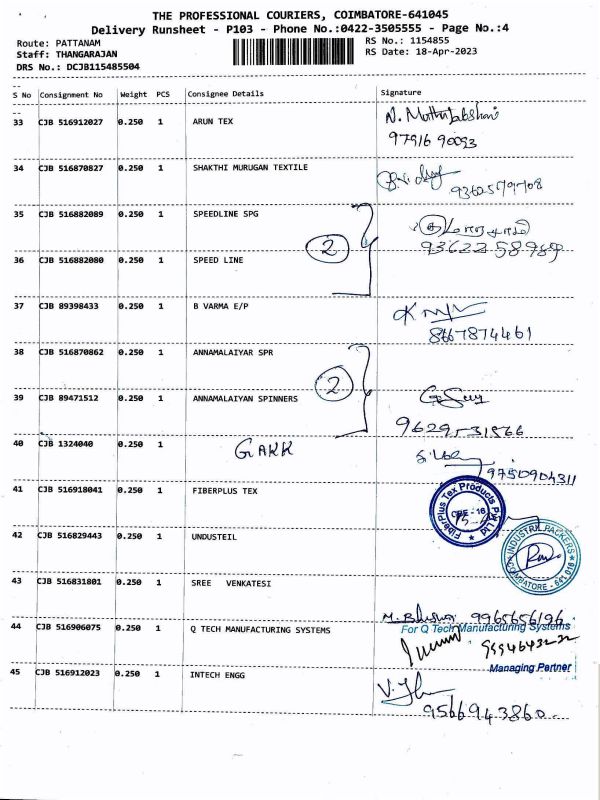 THE PROFESSIONAL COURIERS, COIMBATORE-641045
Delivery Runsheet - P103 - Phone No.:0422-3505555 - Page No.:4
Route: PATTANAM
RS No.: 1154855
Staff: THANGARAJAN
RS Date: 18-Apr-2023
DRS No.: DCJB115485504
S No Consignment No Weight PCS Consignee Details Signature
33 CJB 516912027 0.250 1 ARUN TEX
97916 90093
34 CJB 516870827 0.250 1 SHAKTHI MURUGAN TEXTILE
35 CJB 516882089 0.250 1 SPEEDLINE SPG
2
36 CJB 516882080 0.250 1 SPEED LINE
37 CJB 89398433 0.250 1 B VARMA E/P
8667874461
38 CJB 516870862 0.250 1 ANNAMALAIYAR SPR
2
39 CJB 89471512 0.250 1 ANNAMALAIYAN SPINNERS
40 CJB 1324040 0.250 1 GAKK
9750904311
41 CJB 516918041 0.250 1 FIBERPLUS TEX
FiberPlus Tex Products Pvt Ltd
CBE - 16
42 CJB 516829443 0.250 1 UNDUSTEIL
INDUSTRI PACKERS
COIMBATORE - 641 016
43 CJB 516831801 0.250 1 SREE VENKATESI
9965656196
44 CJB 516906075 0.250 1 Q TECH MANUFACTURING SYSTEMS
For Q Tech Manufacturing Systems
Managing Partner
45 CJB 516912023 0.250 1 INTECH ENGG
9566943860